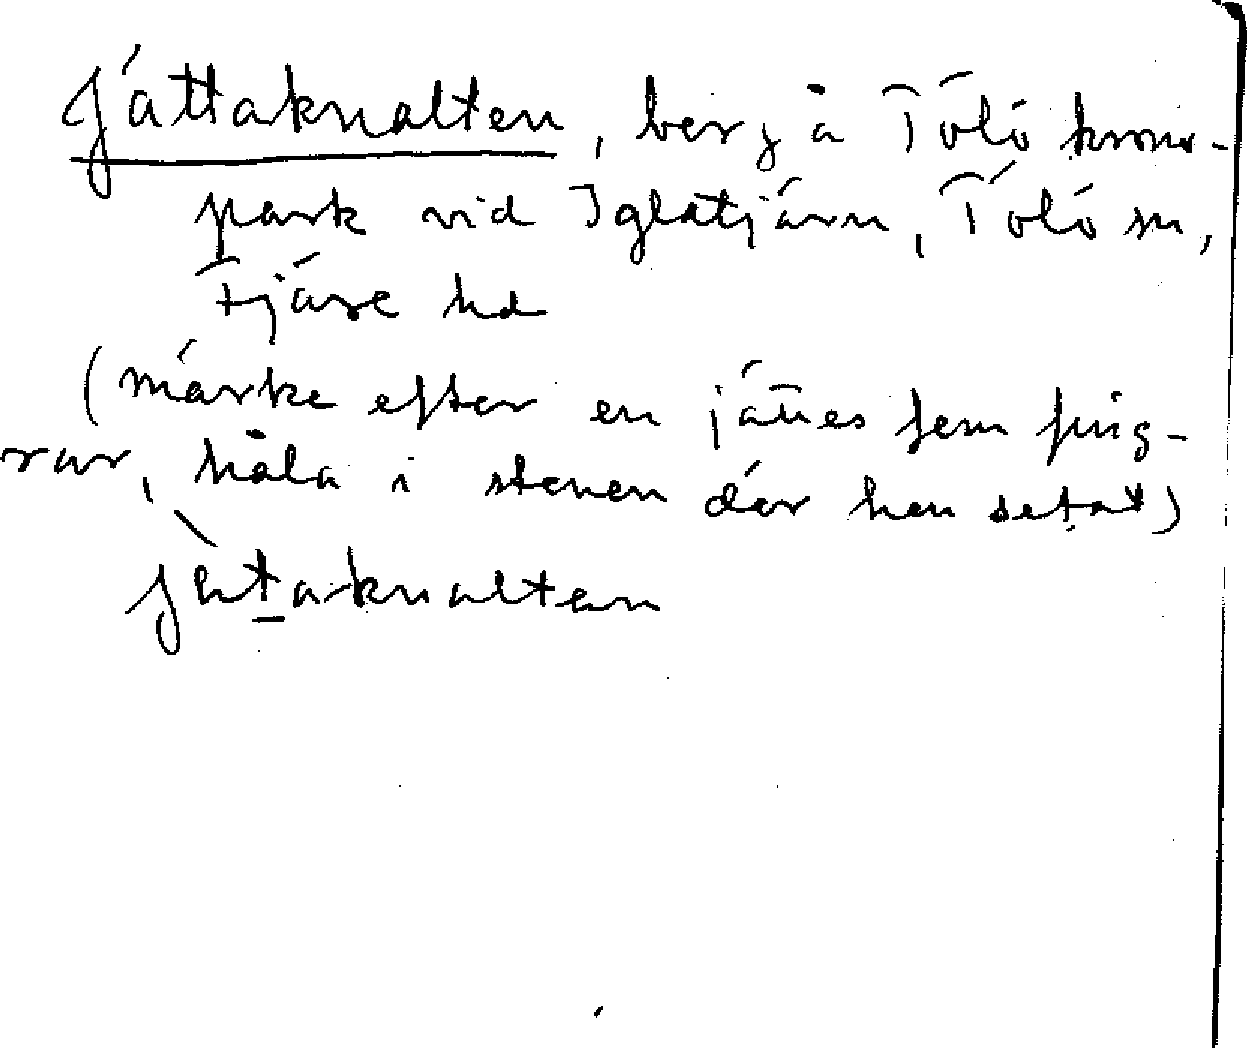 Jättaknalten, berg å Tölö krono-
park vid Iglatjärn, Tölö sn,
Fjäre hd
(märke efter en jättes fem fing-
rar, håla i stenen där han setat)
jètaknaltən